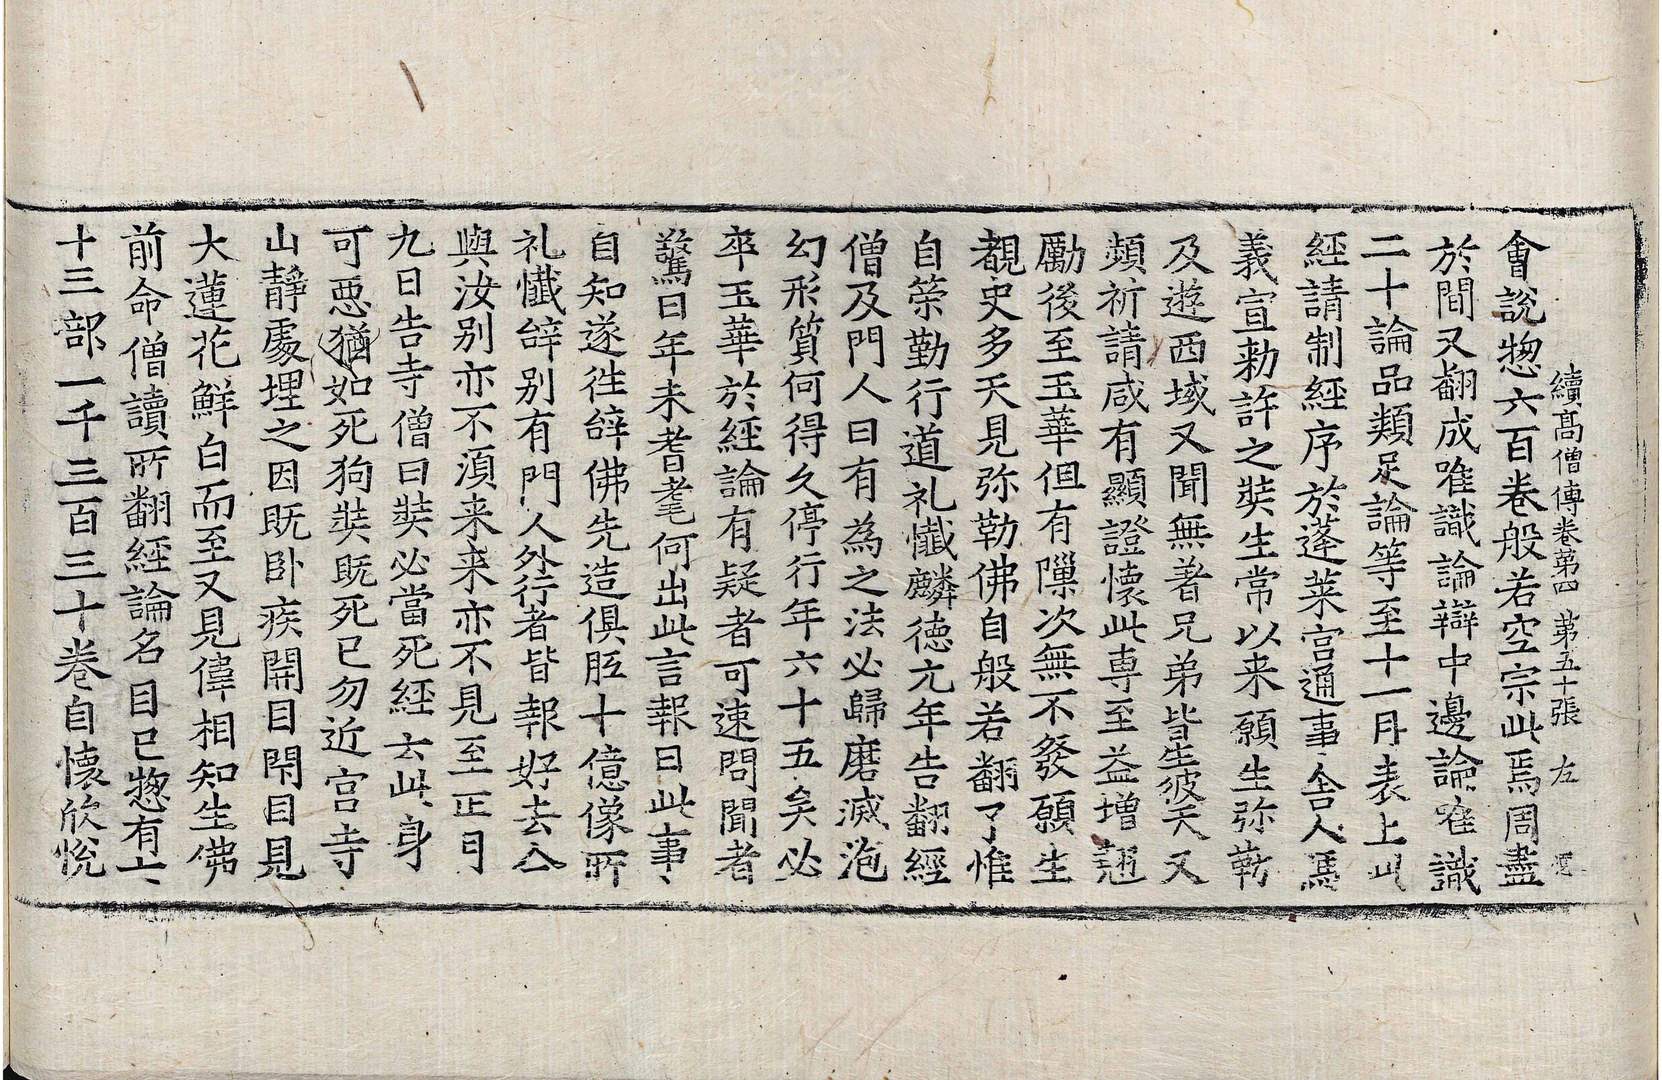 續高僧傳卷第四　第五十張　左
會說惣六百卷般若空宗此焉周盡
於間又翻成唯識論辯中邊論唯識
二十論品類足論等至十一月表上此
經請制經序於蓬萊宮通事舍人馮
義宣勑許之奘生常以来願生弥勒
及遊西域又聞無著兄弟皆生彼天又
頻祈請咸有顯證懷此專至益增翹
勵後至玉華但有隟次無不發願生
覩史多天見弥勒佛自般若翻了惟
自策勤行道礼懺麟德元年告翻經
僧及門人曰有為之法必歸磨滅泡
幻形質何得久停行年六十五矣必
卒玉華於經論有疑者可速問聞者
驚曰年未耆耄何出此言報曰此事
自知遂徃辝佛先造俱胝十億像所
礼懺辝别有門人外行者皆報好去今
與汝别亦不湏来来亦不見至正月
九日告寺僧曰奘必當死經云此身
可惡猶如死狗奘既死已勿近宮寺
山靜處埋之因既卧疾開目閇目見
大蓮花鮮白而至又見偉相知生佛
前命僧讀所翻經論名目已惣有七
十三部一千三百三十卷自懷欣悅